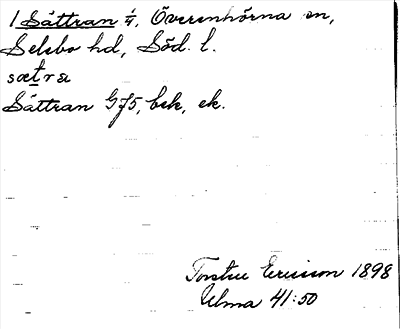 1 Sättran ¼, Överenhörna sn,
Selebo hd, Söd. l.
sætra
Sättran Gf5, bek, ek.
Torsten Ericsson 1898
Ulma 41:50